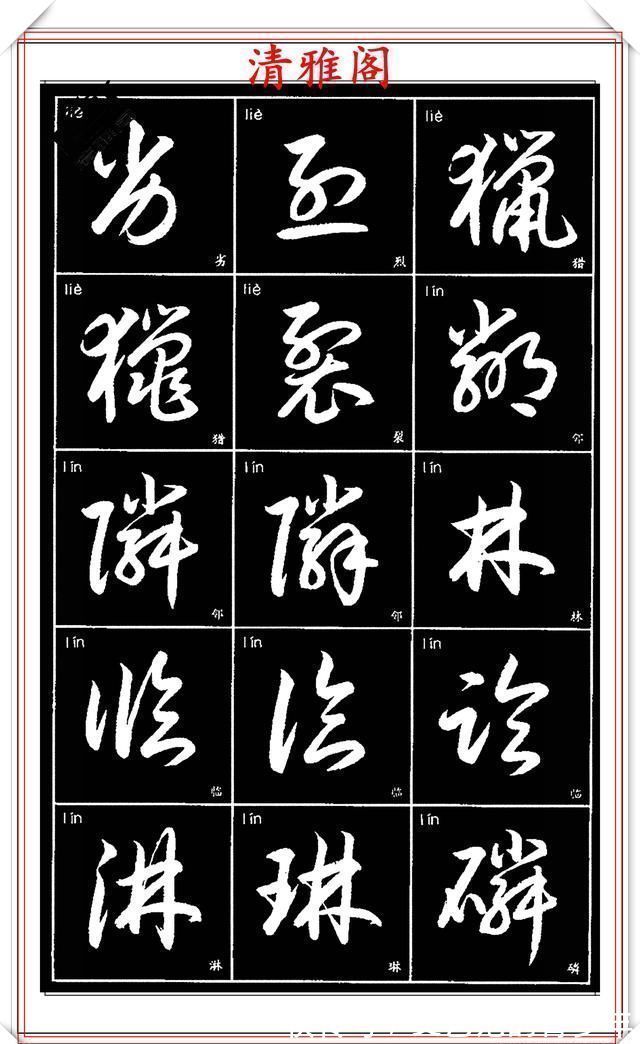 清雅阁
liè liè liè
劣 烈 猎
liè liè lín
猎 裂 邻
lín lín lín
邻 邻 林
lín lín lín
临 临 临
lín lín lín
淋 琳 磷